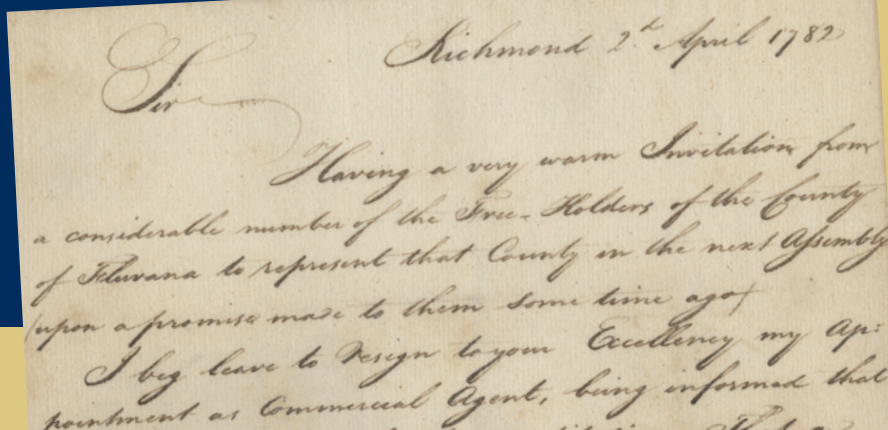 Richmond 2d. April 1782
Sir
Having a very warm Invitation from
a considerable number of the Free-Holders of the County
of Fluvana to represent that County in the next Assembly
(upon a promise made to them some time ago)
I beg leave to Resign to your Excellency my Ap:
pointment as Commercial Agent, being informed that